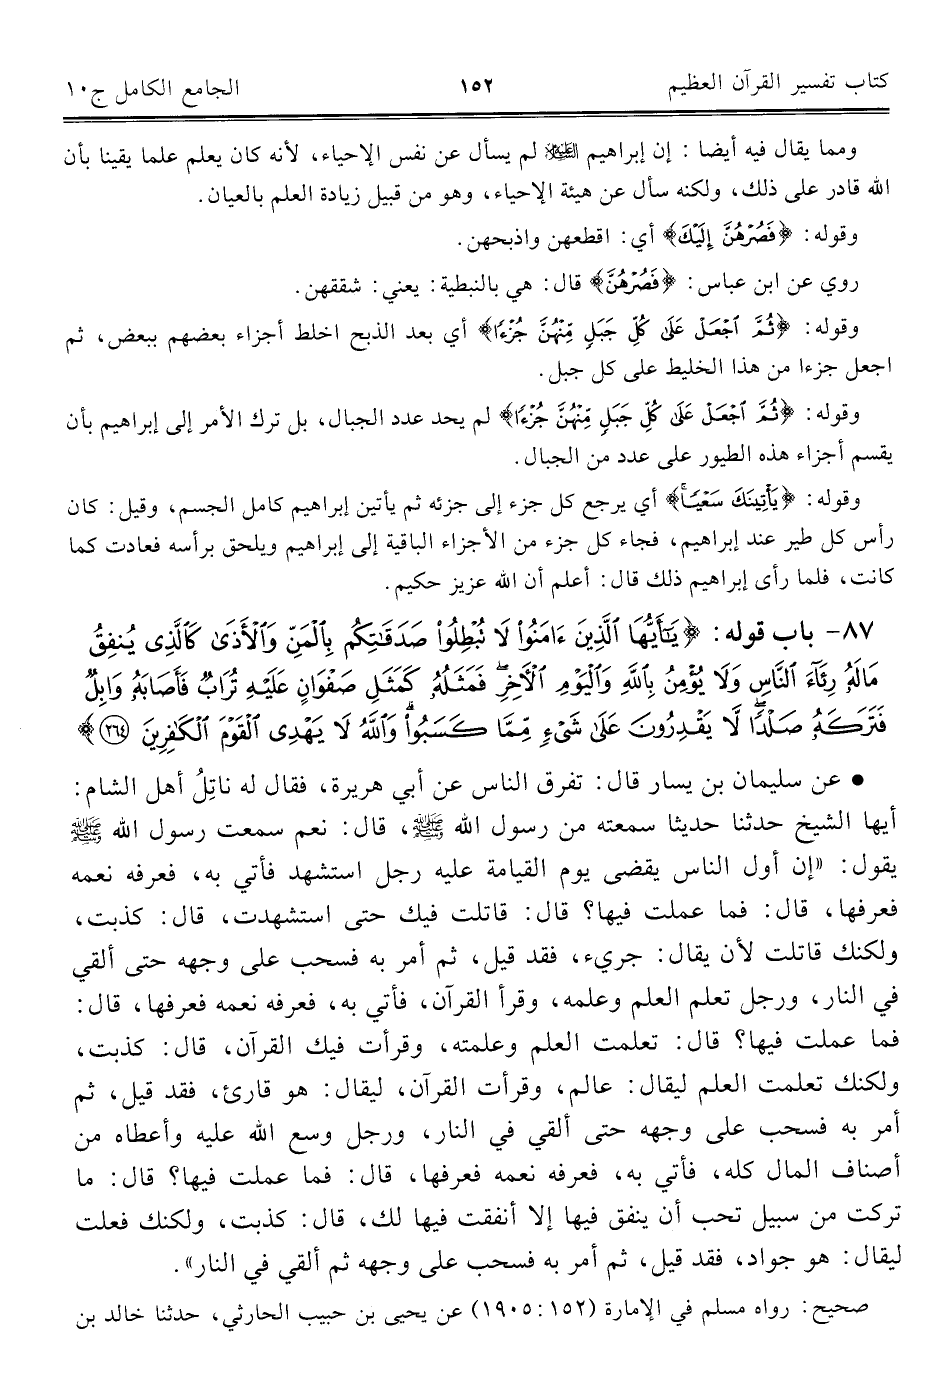 كتاب تفسير القرآن العظيم ١٥٢ الجامع الكامل ج١٠
ومما يقال فيه أيضا: إن إبراهيم عليه السلام لم يسأل عن نفس الإحياء، لأنه كان يعلم علما يقينا بأن
الله قادر على ذلك، ولكنه سأل عن هيئة الإحياء، وهو من قبيل زيادة العلم بالعيان.
وقوله: ﴿فَصُرْهُنَّ إِلَيْكَ﴾ أي: اقطعهن واذبحهن.
روي عن ابن عباس: ﴿فَصُرْهُنَّ﴾ قال: هي بالنبطية: يعني: شققهن.
وقوله: ﴿ثُمَّ ٱجْعَلْ عَلَىٰ كُلِّ جَبَلٍ مِّنْهُنَّ جُزْءًا﴾ أي بعد الذبح اخلط أجزاء بعضهم ببعض، ثم
اجعل جزءا من هذا الخليط على كل جبل.
وقوله: ﴿ثُمَّ ٱجْعَلْ عَلَىٰ كُلِّ جَبَلٍ مِّنْهُنَّ جُزْءًا﴾ لم يحد عدد الجبال، بل ترك الأمر إلى إبراهيم بأن
يقسم أجزاء هذه الطيور على عدد من الجبال.
وقوله: ﴿يَأْتِينَكَ سَعْيًا ۚ﴾ أي يرجع كل جزء إلى جزئه ثم يأتين إبراهيم كامل الجسم، وقيل: كان
رأس كل طير عند إبراهيم، فجاء كل جزء من الأجزاء الباقية إلى إبراهيم ويلحق برأسه فعادت كما
كانت، فلما رأى إبراهيم ذلك قال: أعلم أن الله عزيز حكيم.
٨٧- باب قوله: ﴿يَٰٓأَيُّهَا ٱلَّذِينَ ءَامَنُوا۟ لَا تُبْطِلُوا۟ صَدَقَٰتِكُم بِٱلْمَنِّ وَٱلْأَذَىٰ كَٱلَّذِى يُنفِقُ
مَالَهُۥ رِئَآءَ ٱلنَّاسِ وَلَا يُؤْمِنُ بِٱللَّهِ وَٱلْيَوْمِ ٱلْءَاخِرِ ۖ فَمَثَلُهُۥ كَمَثَلِ صَفْوَانٍ عَلَيْهِ تُرَابٌ فَأَصَابَهُۥ وَابِلٌ
فَتَرَكَهُۥ صَلْدًا ۖ لَّا يَقْدِرُونَ عَلَىٰ شَىْءٍ مِّمَّا كَسَبُوا۟ ۗ وَٱللَّهُ لَا يَهْدِى ٱلْقَوْمَ ٱلْكَٰفِرِينَ ﴿٢٦٤﴾﴾
• عن سليمان بن يسار قال: تفرق الناس عن أبي هريرة، فقال له ناتِلُ أهل الشام:
أيها الشيخ حدثنا حديثا سمعته من رسول الله ﷺ، قال: نعم سمعت رسول الله ﷺ
يقول: «إن أول الناس يقضى يوم القيامة عليه رجل استشهد فأتي به، فعرفه نعمه
فعرفها، قال: فما عملت فيها؟ قال: قاتلت فيك حتى استشهدت، قال: كذبت،
ولكنك قاتلت لأن يقال: جريء، فقد قيل، ثم أمر به فسحب على وجهه حتى ألقي
في النار، ورجل تعلم العلم وعلمه، وقرأ القرآن، فأتي به، فعرفه نعمه فعرفها، قال:
فما عملت فيها؟ قال: تعلمت العلم وعلمته، وقرأت فيك القرآن، قال: كذبت،
ولكنك تعلمت العلم ليقال: عالم، وقرأت القرآن، ليقال: هو قارئ، فقد قيل، ثم
أمر به فسحب على وجهه حتى ألقي في النار، ورجل وسع الله عليه وأعطاه من
أصناف المال كله، فأتي به، فعرفه نعمه فعرفها، قال: فما عملت فيها؟ قال: ما
تركت من سبيل تحب أن ينفق فيها إلا أنفقت فيها لك، قال: كذبت، ولكنك فعلت
ليقال: هو جواد، فقد قيل، ثم أمر به فسحب على وجهه ثم ألقي في النار».
صحيح: رواه مسلم في الإمارة (١٥٢: ١٩٠٥) عن يحيى بن حبيب الحارثي، حدثنا خالد بن